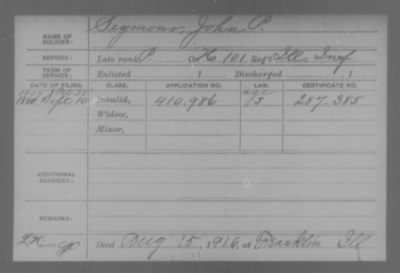 Seymour, John P.
NAME OF SOLDIER:
SERVICE: Late rank P. Co. H. 101. Reg't Ill. Inf
TERM OF SERVICE: Enlisted , 1 Discharged , 1
DATE OF FILING. CLASS. APPLICATION NO. LAW. CERTIFICATE NO.
Sept. 10 Invalid, 410.986 287.385
Widow,
Minor,
ADDITIONAL SERVICES:
REMARKS:
Died Aug 15, 1916, at Franklin Ill